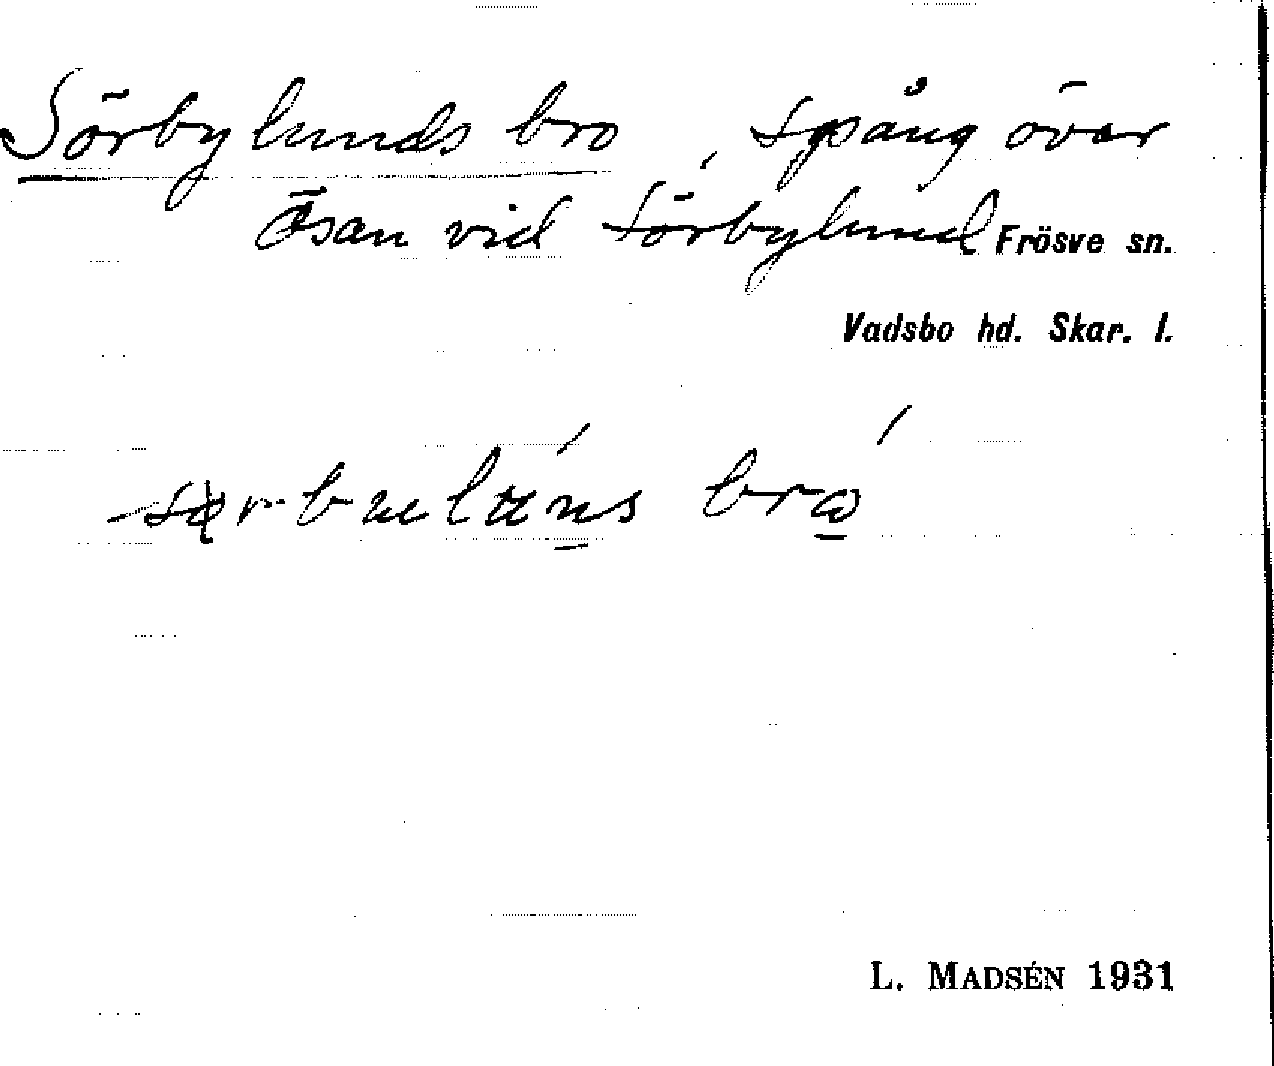 Sörbylunds bro, spång över
Ösan vid Sörbylund Frösve sn.
Vadsbo hd. Skar. l.
bro
L. MADSÉN 1931